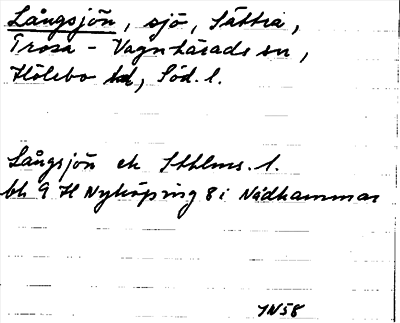 Långsjön, sjö, Sättra,
Trosa - Vagnhärads sn,
Hölebo hd, Söd. l.
Långsjön ek Sthlms. l.
bl. 9 H Nyköping 8 i Nådhammar
JN58